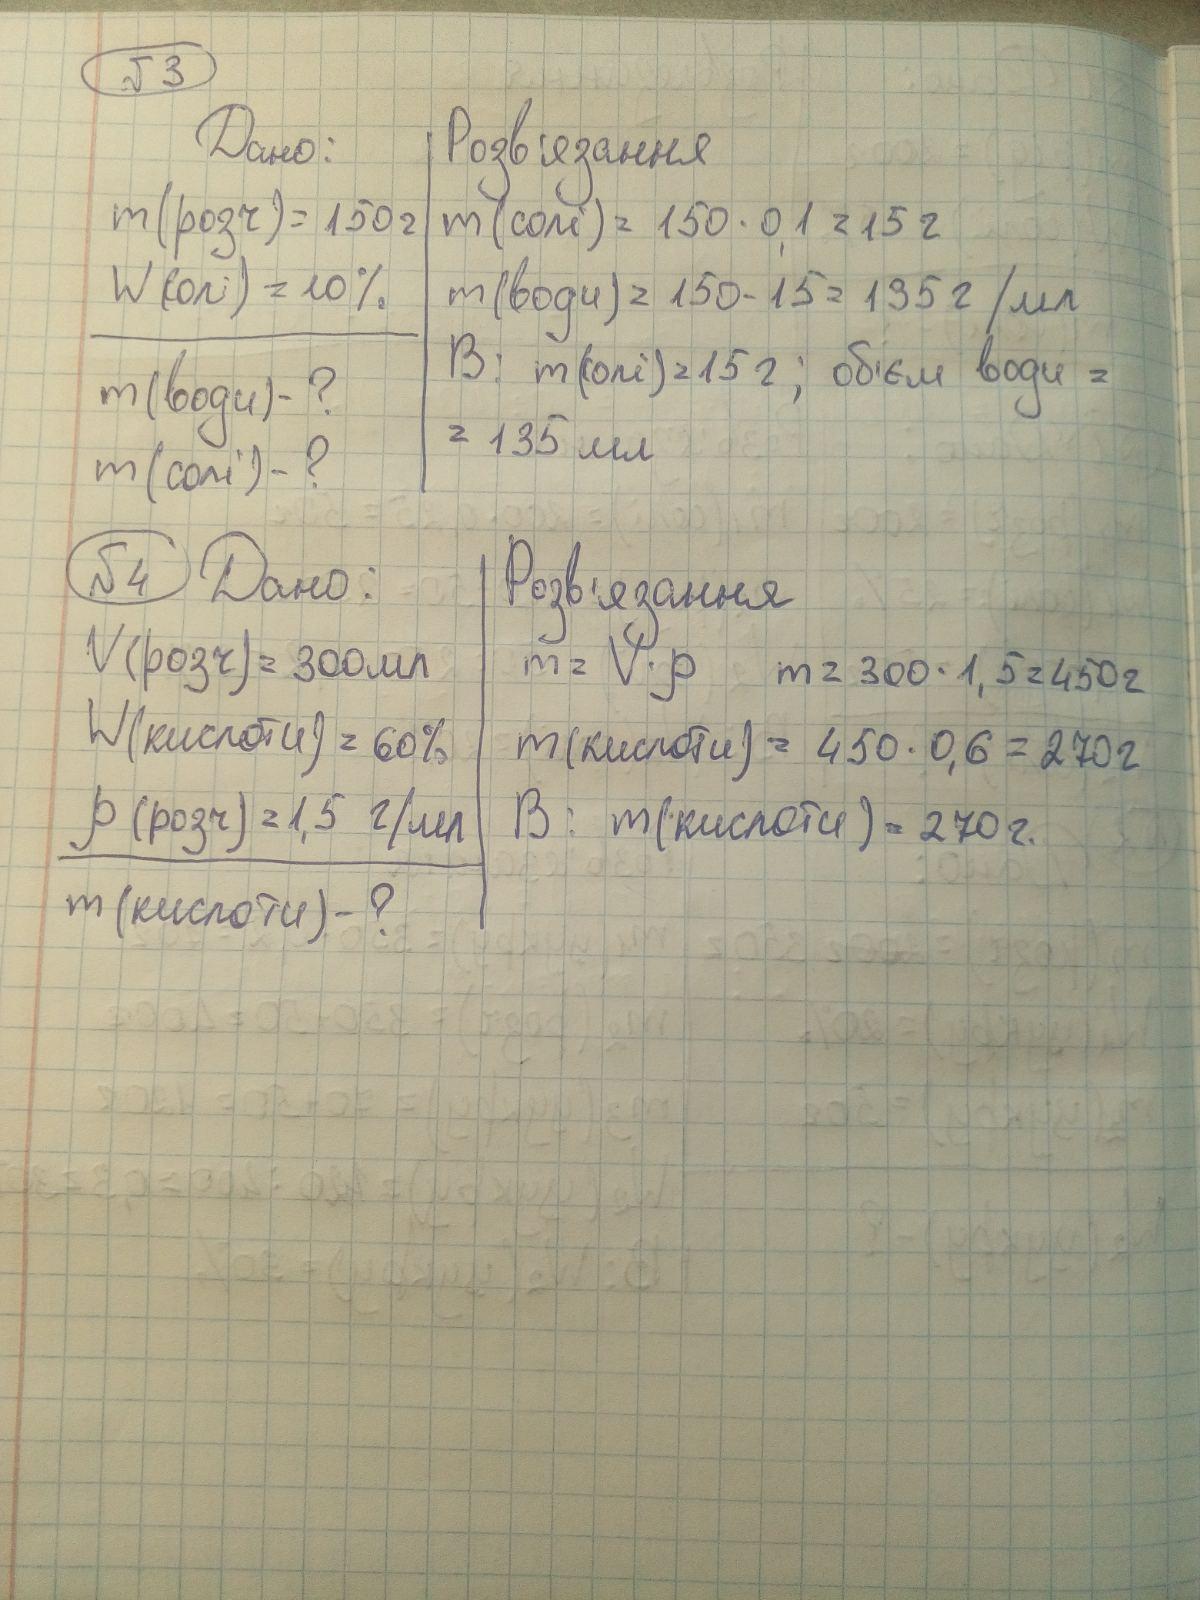 №3
Дано:
m(розч)=150г
W(солі)=10%
m(води)-?
m(солі)-?
Розв'язання
m(солі)=150·0,1=15г
m(води)=150-15=135г/мл
В: m(солі)=15г; об'єм води =
= 135 мл
№4 Дано:
V(розч)=300мл
W(кислоти)=60%
ρ(розч)=1,5 г/мл
m(кислоти)-?
Розв'язання
m=V·ρ m=300·1,5=450г
m(кислоти)=450·0,6=270г
В: m(кислоти)=270г.